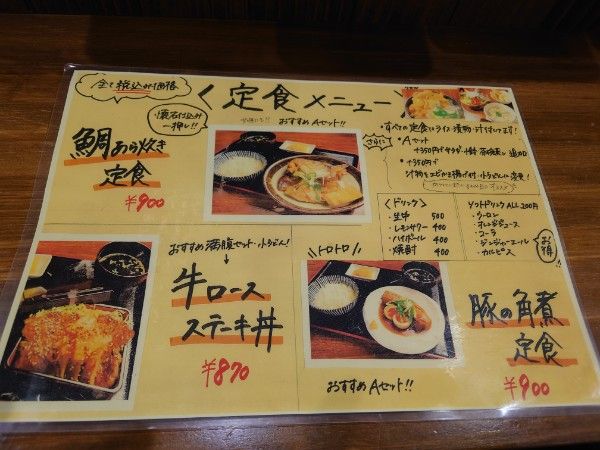 全て税込み価格
く定食メニュー
懐石仕込み
一押し!!
おすすめAセット!!
鯛あら炊き
定食
¥900
・すべての定食にライス・漬物・汁付いてます!
さらに
・Aセット
+350円で
小鉢 茶碗蒸し 追加
・+350円で
汁物を
に変更!
<ドリンク>
・生中 500
・レモンサワー 400
・ハイボール 400
・焼酎 400
ソフトドリンク ALL 200円
・ウーロン
・オレンジジュース
・コーラ
・ジンジャーエール
・カルピス
お得
おすすめ満腹セット・小うどん!
牛ロース
ステーキ丼
¥870
トロトロ
豚の角煮
定食
¥900
おすすめAセット!!